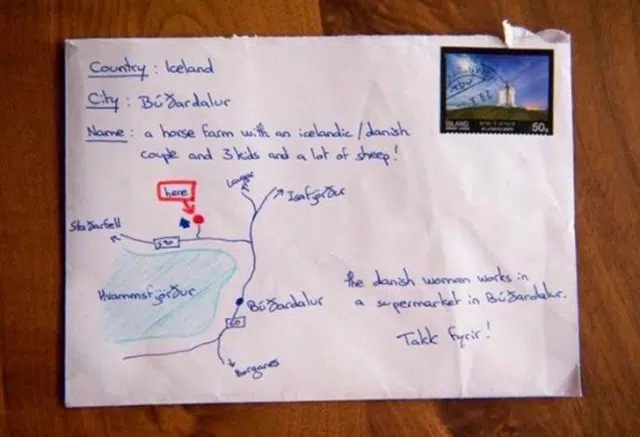 Country : Iceland
City : Búðardalur
Name : a horse farm with an icelandic/danish
couple and 3 kids and a lot of sheep!
here
Isafjörður
Staðarfell
590
Hvammsfjörður
Búðardalur
60
Borganes
the danish women works in
a supermarket in Búðardalur.
Takk fyrir!
ÍSLAND
50g